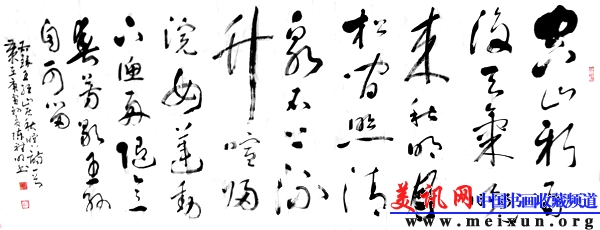 空山新雨
後天氣晚
來秋明月
松間照清
泉石上流
竹喧歸
浣女蓮動
下漁舟隨意
春芳歇王孫
自可留
王維山居秋暝詩一首
美讯网 中国书画收藏频道
www.meixun.org